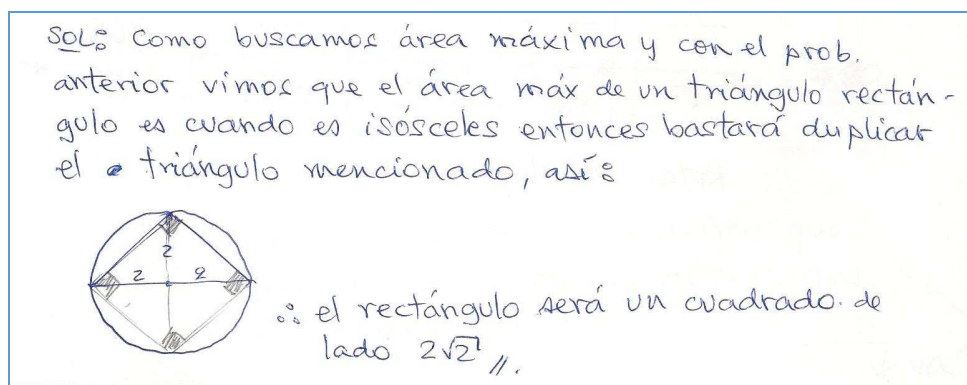 SOL: Como buscamos área máxima y con el prob.
anterior vimos que el área máx de un triángulo rectán-
gulo es cuando es isósceles entonces bastará duplicar
el triángulo mencionado, así:
2
2 2
∴ el rectángulo será un cuadrado de
lado 2√2 //.